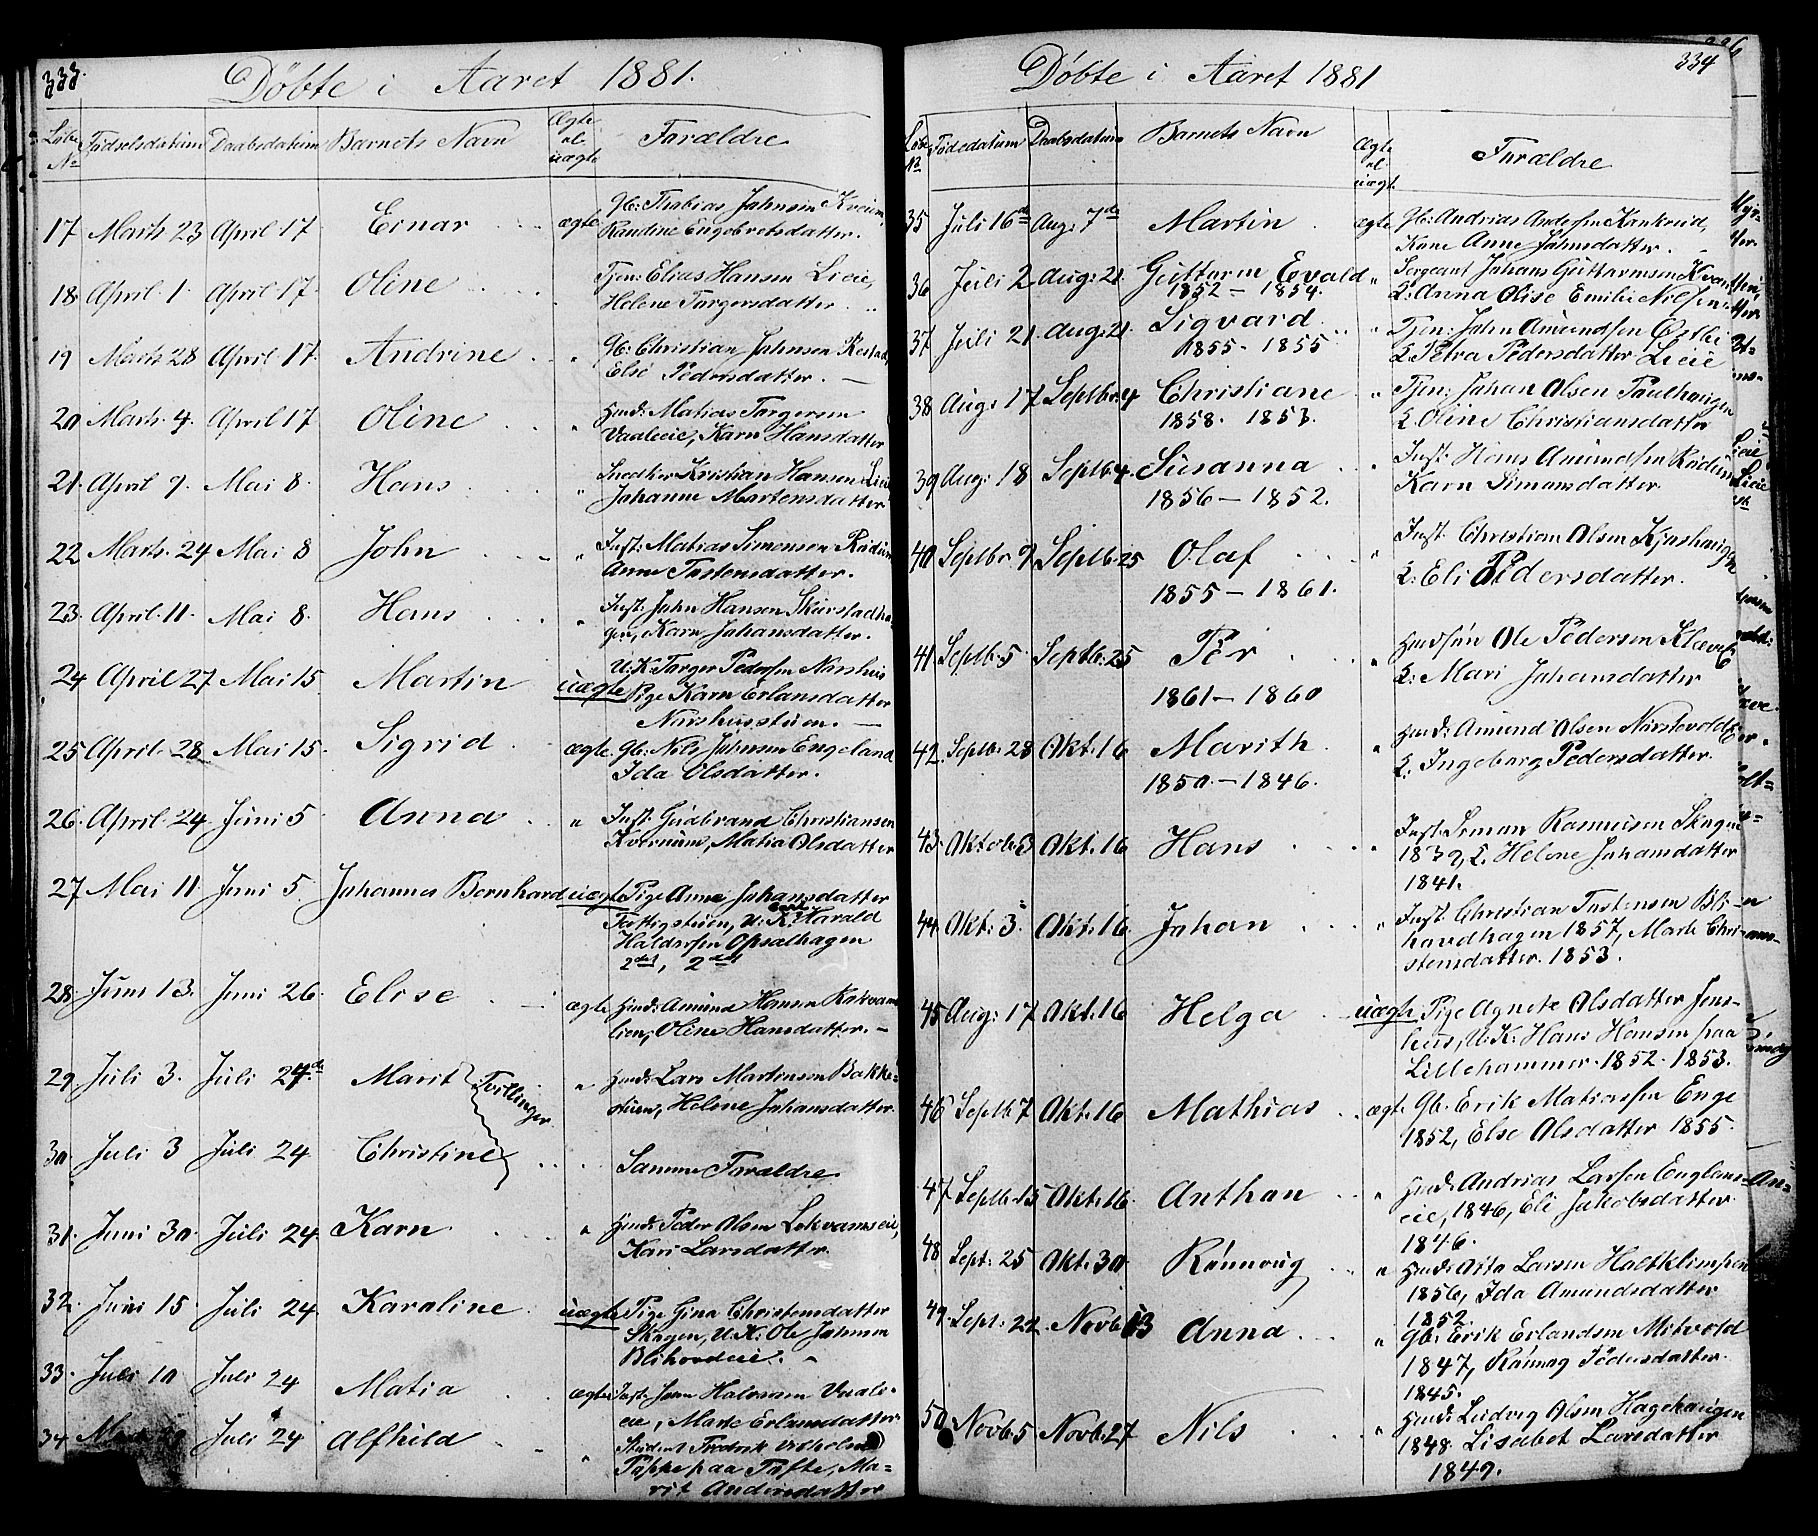 333.
Döbte i Aaret 1881.
Löbe No Fødselsdatum Daabsdatum Barnets Navn Ægte el. uægte Forældre
17 Marts 23 April 17 Einar ægte Gb: Thobias Johnsen Kveum,
Randine Engebretsdatter.
18. April 1 April 17 Oline " Tjen: Elias Hansen Lieie,
Helene Torgersdatter.
19 Marts 28 April 17. Andrine " Gb: Christian Johnsen
Else Pedersdatter.
20 Marts. 4. April 17 Oline " Husd: Matias Torgersen
Vaaleeie, Karn Hansdatter
21. April 9. Mai 8. Hans " Snedker Kristian Hansen Lieie
Johanne Martensdatter
22 Marts. 24 Mai 8 John " Inst: Matias Simensen
Anne Tostensdatter.
23. April. 11. Mai 8. Hans " Inst: John Hansen Skurstadha-
gen, Karn Johansdatter.
24 April 27 Mai 15. Martin uægte U.K. Torger Pedersen Norshus
Pige Karn Erlansdatter
Norshusstuen.
25 April. 28. Mai 15. Sigrid ægte. Gb: Nils Johnsen Engeland
Ida Olsdatter.
26. April. 24 Juni 5 Anna " Inst. Gudbrand Christiansen
Kvernum, Matia Olsdatter
27 Mai 11. Juni 5. Johannes Bernhard uægte Pige Anne Johansdatter
Fattigstuen, U.K. Harald
Haldorsen Opsalhagen
2det, 2det
28. Juni 13. Juni 26. Elise ægte Husd: Amund Hansen
lien, Oline Hansdatter.
29 Juli 3. Juli 24de Marit Tvillinger " Husd: Lars Martinsen Bakke-
stuen, Helene Johansdatter.
30. Juli 3 Juli 24 Christine Samme Forældre
31. Juni 30. Juli 24. Karn " Husd: Peder Olsen
Kari Larsdatter.
32. Juni 15 Juli 24 Karoline. uægte Pige Gina Christensdatter
Skogen, U.K: Ole Johnsen
Blihovdeie.
33. Juli 10 Juli 24 Matia ægte Inst. Halvorsen Vaale-
eie, Marte Erlansdatter
34 Juli 24 Alfhild " Student Fredrik Vilhelm
paa Tofte, Ma-
rit Andersdatter
334
Döbte i Aaret 1881
Löbe No Födedatum Daabsdatum Barnets Navn Ægte el. uægt. Forældre
35 Juli 16de Aug: 7de Martin ægte Gb: Andrias Andersen Kankerud,
Kone Anne Johnsdatter.
36 Juli 2 Aug: 21. Guttorm Evald " Sergeant Johans Guttormsen Kvam
1852 – 1854. K: Anna Olise Emilie Nilsen
37 Juli 21. Aug: 21. Sigvard " Tjen: John Amundsen Østlie
1855 - 1855 K: Petra Pedersdatter Lieie
38 Aug: 17 Septbr. 4 Christiane " Tjen: Johan Olsen Paulhaugen
1858. 1853. K. Oline Christiansdatter
39 Aug: 18 Septb. 4. Susanna " Inst: Hans Amundsen
1856 – 1852. Karn Simensdatter.
40 Septbr. 9 Septb. 25 Olaf " Inst Christian Olsen
1855 – 1861. K: Eli Pedersdatter.
41. Septb. 5 Septb: 25 Per " Husd Ole Pedersen
1861 – 1860 K: Mari Johansdatter
42. Septb. 28 Okt. 16 Marith " Husd: Amund Olsen
1850. – 1846. K: Ingeborg Pedersdatter.
43. Oktob. 3 Okt. 16 Hans " Inst: Simen Rasmussen Skogen
1839, K. Helene Johansdatter
1841.
44. Okt. 3. Okt. 16. Johan " Inst Christian Tostensen Bli-
hovdhagen 1857, Marte Chri-
stensdatter. 1853.
45 Aug: 17 Okt. 16 Helga uægte Pige Agnete Olsdatter Jens-
hus, U.K: Hans Hansen paa
Lillehammer. 1852. 1853.
46 Septb. 7 Okt. 16 Mathias ægte Gb. Erik Matiassen Enge
1852, Else Olsdatter 1855.
47 Septb. 15 Okt. 16 Anthon " Husd: Andrias Larsen Englans-
eie, 1846, Eli Jakobsdatter
1846.
48 Sept: 25 Okt. 30 Rönnoug " Husd: Larsen
1856, Ida Amundsdatter
1852.
49. Sept: 22 Novb. 13 Anna " Gb: Erik Erlandsen
1847, Rönnog Pedersdatter.
1845.
50 Novb. 5 Novb. 27 Nils " Husd: Ludvig Olsen Hagehaugen
1848. Lisabet Larsdatter
1849.